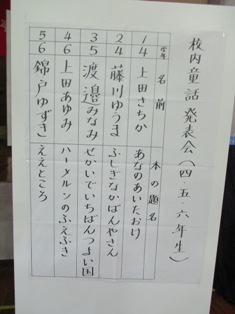 校内童話発表会(四・五・六年生)
学年 名前 本の題名
1/4 上田さちか あなのあいたおけ
2/4 藤川ゆうま ふしぎなかばんやさん
3/5 渡邉みなみ せかいでいちばんつよい国
4/6 上田あゆみ ハーメルンのふえふき
5/6 錦戸ゆずき ええところ